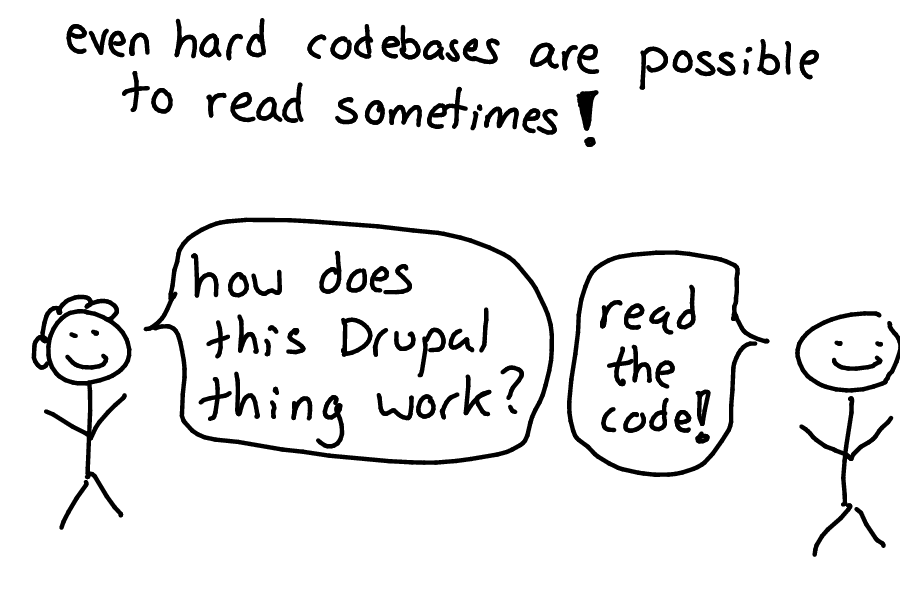 even hard codebases are possible
to read sometimes!
how does
this Drupal
thing work?
read
the
code!